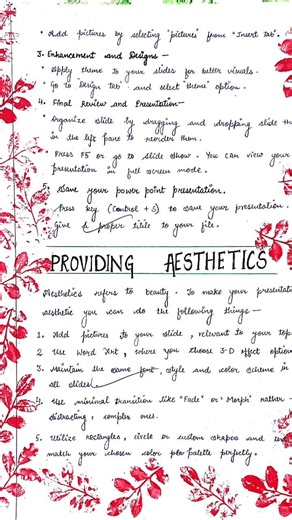 • Add pictures by selecting "pictures" from "Insert tab".
3. Enhancement and Designs —
• Apply theme to your slides for better visuals.
• Go to Design tab and select "theme" option.
4. Final Review and Presentation—
• Organize slide by dragging and dropping slide th
in the left pane to reorder them.
• Press F5 or go to slide show. You can view your
presentation in full screen mode.
5. Save your power point presentation.
Press key (Control + S) to save your presentation.
Give a proper title to your file.
PROVIDING AESTHETICS
Aesthetics refers to beauty. To make your presentat
aesthetic you can do the following things —
1. Add pictures to your slide, relevant to your top
2. Use Word Art, where you choose 3-D effect option
3. Maintain the same font, style and color scheme in
all slides.
4. Use minimal transition like "Fade" or "Morph" rather
distracting, complex ones.
5. Utilize rectangles, circle or custom shapes and
match your chosen color palette perfectly.